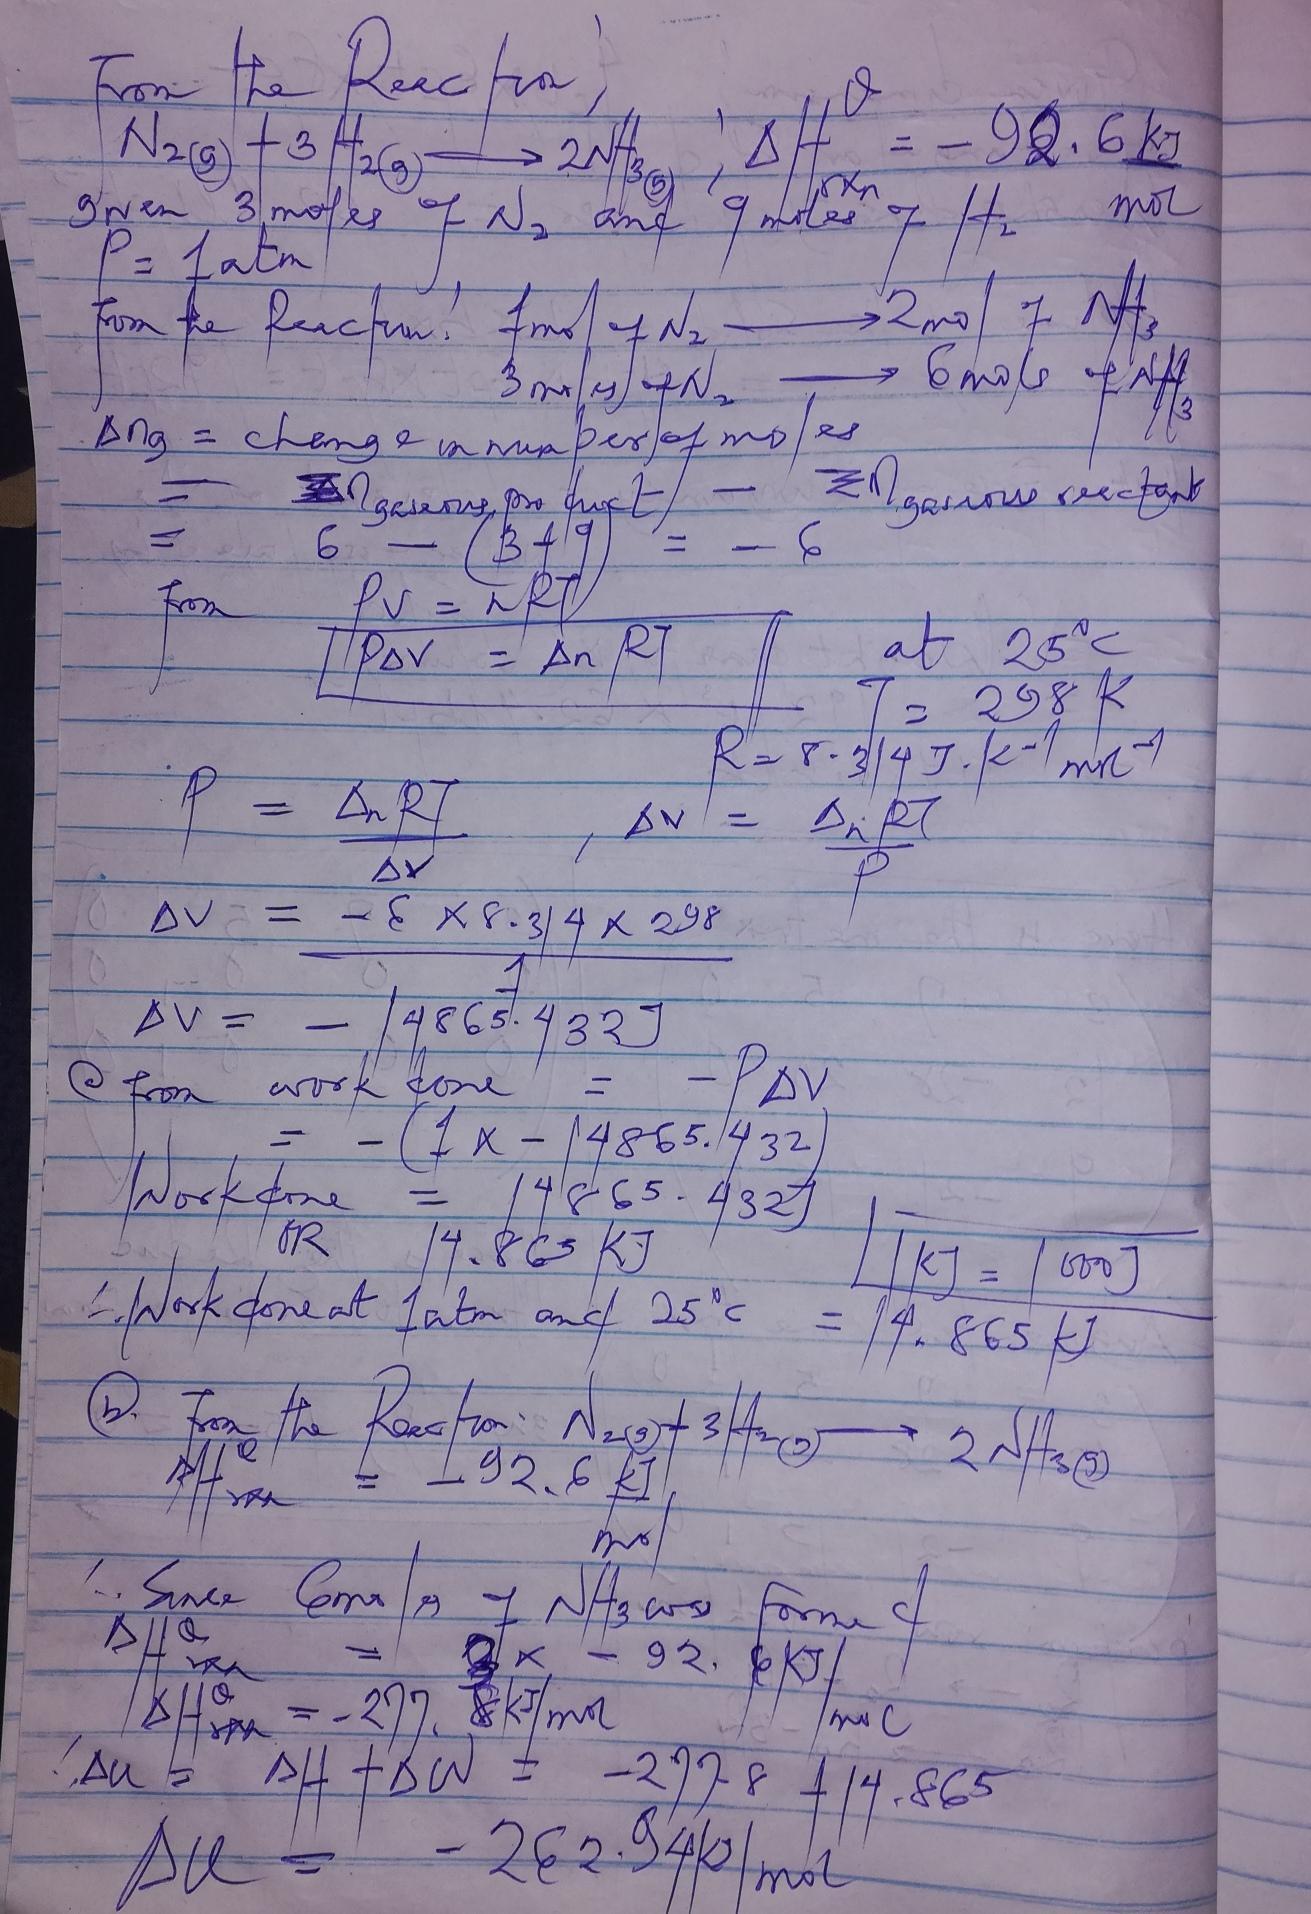 From the Reaction,
N2(g) + 3H2(g) → 2NH3(g), ΔH°rxn = -92.6 kJ/mol
given 3 moles of N2 and 9 moles of H2
P = 1 atm
From the Reaction: 1 mol of N2 → 2 mol of NH3
3 moles of N2 → 6 moles of NH3
Δng = change in number of moles
= Σn gaseous product - Σn gaseous reactant
= 6 - (3+9) = -6
from PV = nRT
PΔV = Δn RT at 25°C
T = 298 K
R = 8.314 J.K-1 mol-1
P = ΔnRT/ΔV, ΔV = ΔnRT/P
ΔV = -6 × 8.314 × 298 / 1
ΔV = - 14865.432J
from work done = - PΔV
= - (1 × - 14865.432)
Work done = 14865.432J
OR 14.865 KJ
1KJ = 1000J
∴ Work done at 1atm and 25°C = 14.865 KJ
(b). From the Reaction: N2(g) + 3H2(g) → 2NH3(g)
ΔH°rxn = -92.6 kJ/mol
∴ Since 6mols of NH3 was formed
ΔH°rxn = 3 × - 92.6KJ/mol
ΔH°rxn = -277.8KJ/mol
∴ Δu = ΔH + ΔW = -277.8 + 14.865
ΔU = - 262.94KJ/mol